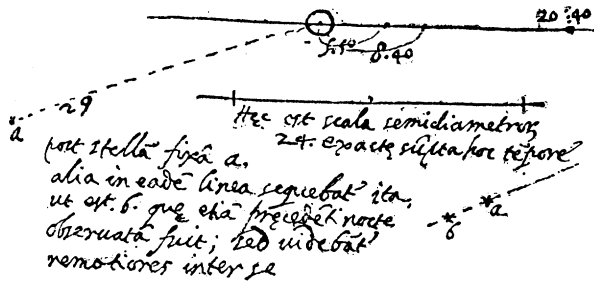 20 :40
5.50 8.40
29
a
Hęc est scala semidiametroꝝ
24. exactę sūpta hoc tēpore
post stellā fixā a.
alia in eadē linea sequebat̄ ita,
ut est .b. quę etiā pręcedēti nocte
obseruata fuit; sed uidebāt̄
remotiores inter se
a
b